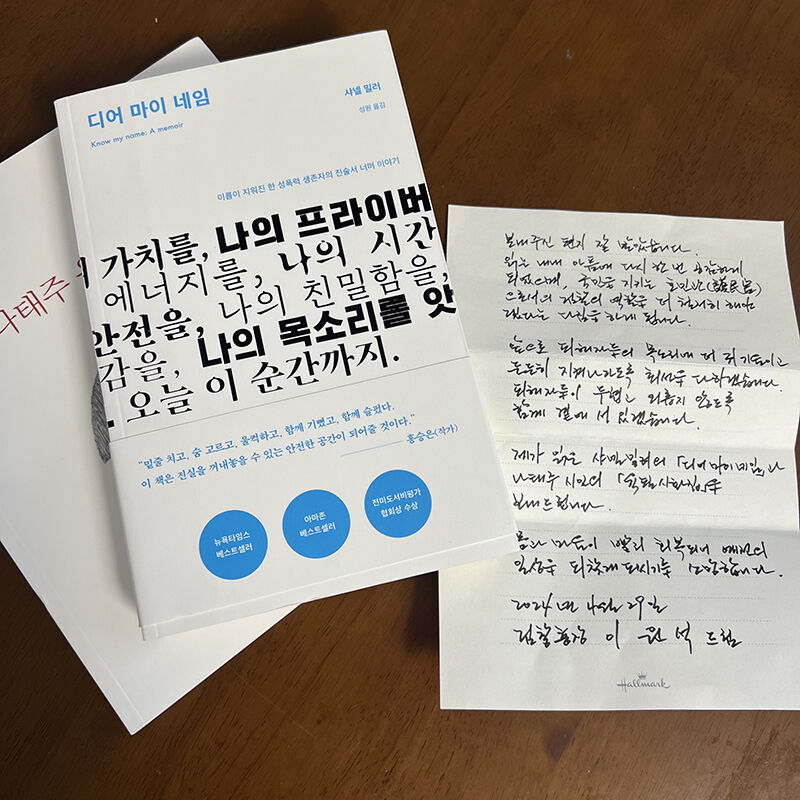 나태주
디어 마이 네임
Know my name: A memoir
샤넬 밀러
성원 옮김
이름이 지워진 한 성폭력 생존자의 진술서 너머 이야기
가치를, 나의 프라이버
에너지를, 나의 시간
안전을, 나의 친밀함을,
감을, 나의 목소리를 앗
오늘 이 순간까지.
“밑줄 치고, 숨 고르고, 울컥하고, 함께 기뻤고, 함께 슬펐다.
이 책은 진실을 꺼내놓을 수 있는 안전한 공간이 되어줄 것이다.”
홍승은(작가)
뉴욕타임스
베스트셀러
아마존
베스트셀러
전미도서비평가
협회상 수상
보내주신 편지 잘 받았습니다.
읽는 내내 아픔에 다시 한 번 공감하게
되었으며, 국민을 지키는 호민관(護民官)
으로서의 검찰의 역할을 더 철저히 해야
겠다는 다짐을 하게 됩니다.
앞으로 피해자들의 목소리에 더 귀 기울이고
든든히 지켜나가도록 최선을 다하겠습니다.
피해자들이 두렵고 외롭지 않도록
함께 곁에 서 있겠습니다.
제가 읽은 샤넬 밀러의 「디어 마이 네임」과
나태주 시인의 「육필시화집」을
보내드립니다.
몸과 마음이 빨리 회복되어 예전의
일상을 되찾게 되시기를 소망합니다.
2024년 4월 29일
검찰총장 이 원 석 드림
Hallmark